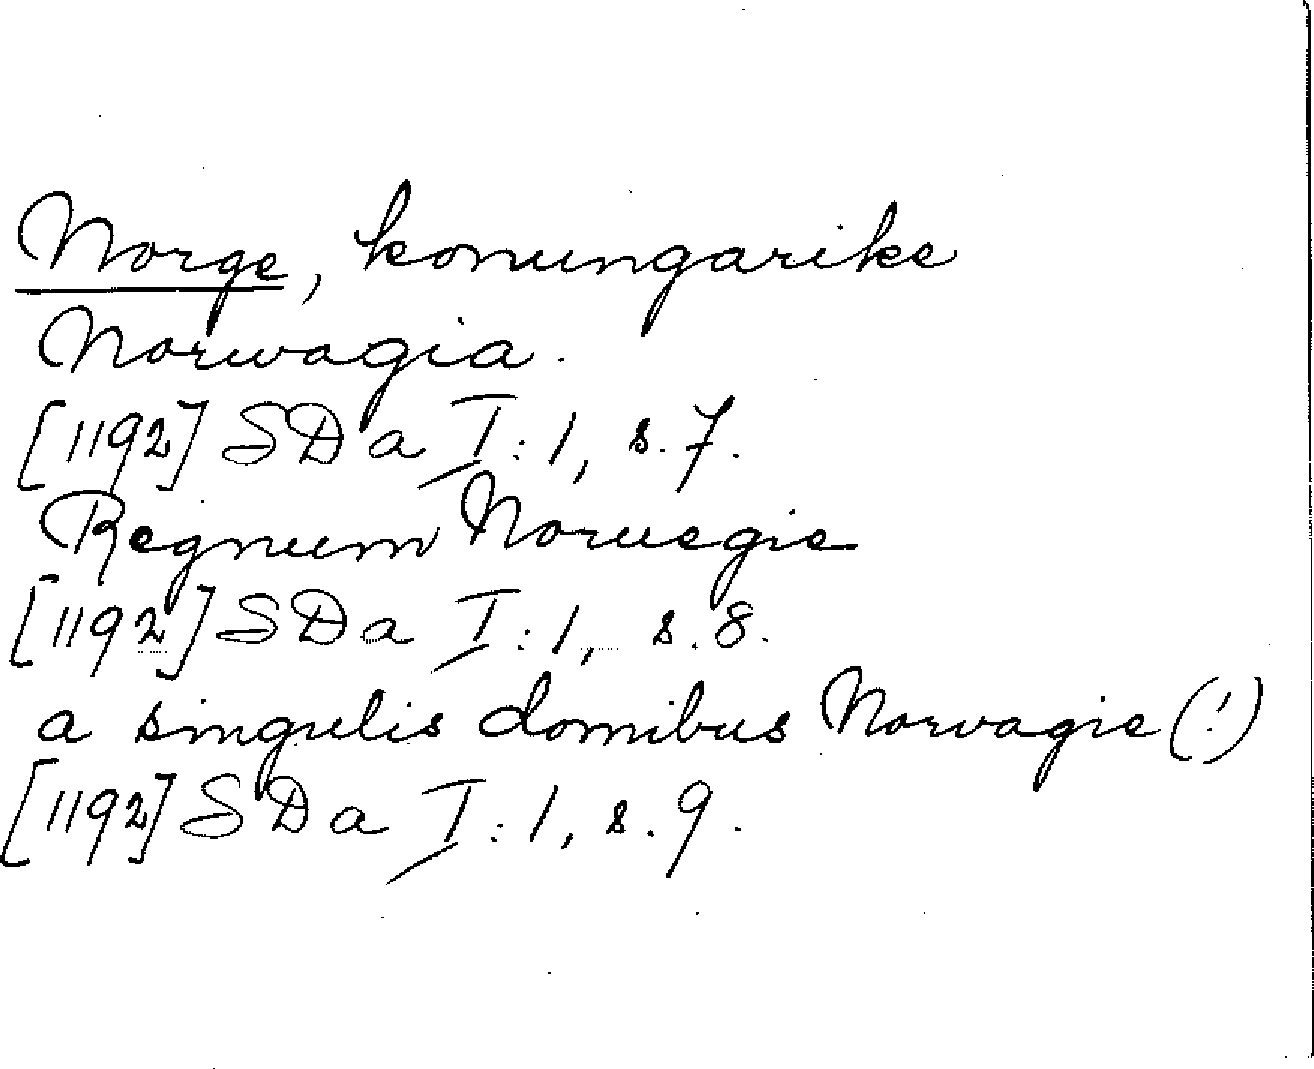 Norge, konungarike
Norwagia.
[1192] SDa I:1, s.7.
Regnum Noruegie
[1192] SDa I:1, s.8.
a singulis domibus Norvagie (!)
[1192] SDa I:1, s.9.